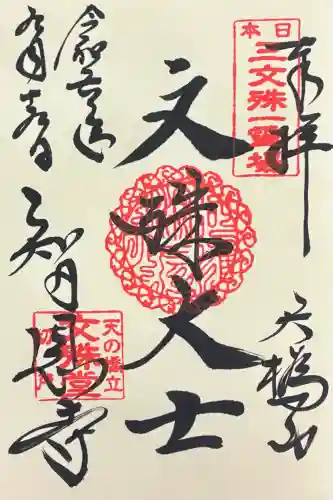 奉拝
日本三文殊一霊場
天橋山
文殊大士
天の橋立
文殊堂
切戸
智恩寺
令和六年
九月